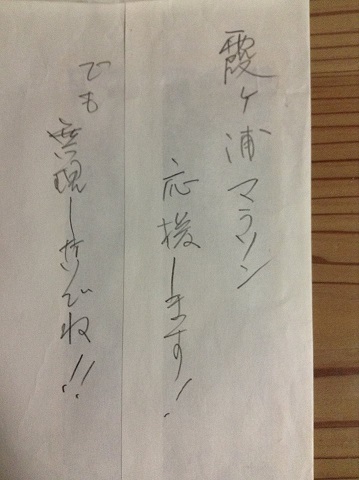 霞ヶ浦マラソン
応援します!
でも無理しきでね!!